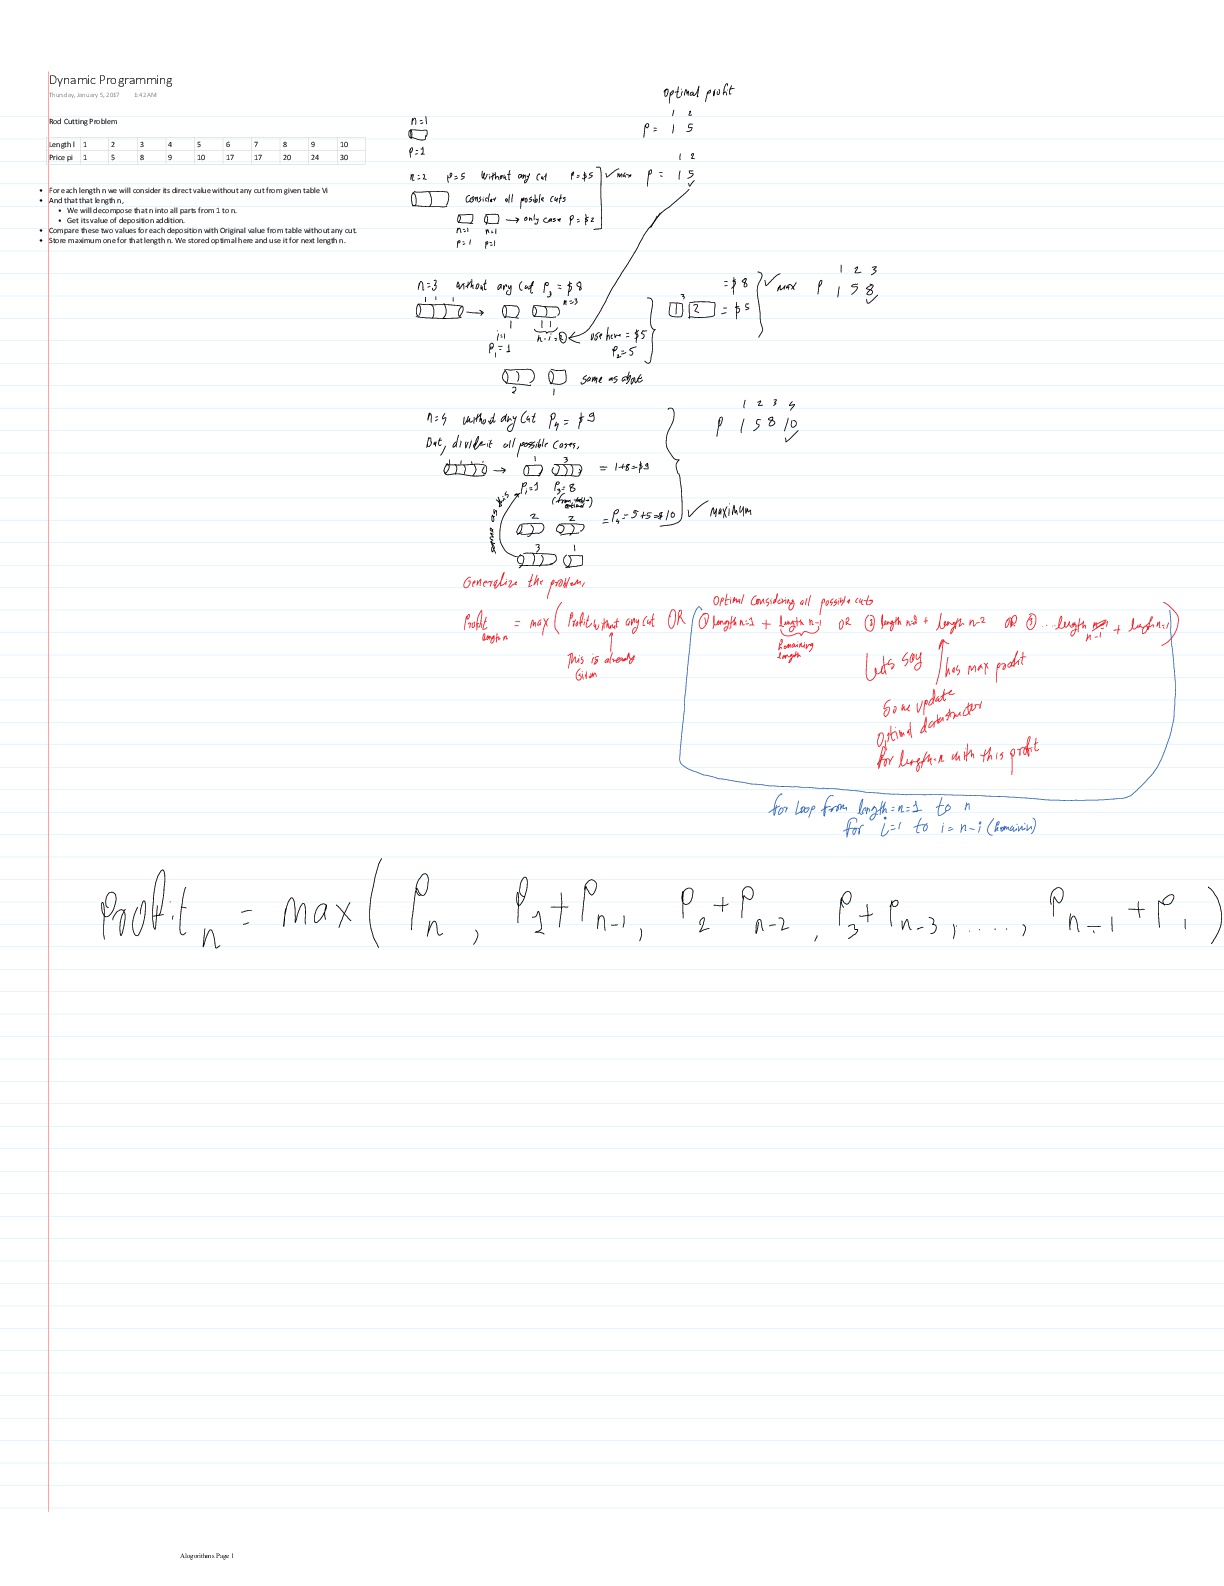 Dynamic Programming
Thursday, January 5, 2017 1:42 AM
Rod Cutting Problem
Length l 1 2 3 4 5 6 7 8 9 10
Price pi 1 5 8 9 10 17 17 20 24 30
For each length n we will consider its direct value without any cut from given table Vi
And that that length n,
We will decompose that n into all parts from 1 to n.
Get its value of deposition addition.
Compare these two values for each deposition with Original value from table without any cut.
Store maximum one for that length n. We stored optimal here and use it for next length n.
optimal profit
n=1
1 2
P = 1 5
P=1
n=2 P=5 without any cut P=$5 ✓ max
1 2
P = 1 5
✓
Consider all posible cuts
→ only case P=$2
n=1 n=1
P=1 P=1
n=3 without any cut P3 = $8
= $8 ✓ max
1 2 3
P 1 5 8
✓
→
n=3
3
1 2 = $5
1 1 1
i=1
n-i=2
P1=1
use here = $5
P2=5
2 1 same as
n=4 without any cut P4 = $9
1 2 3 4
P 1 5 8 10
✓
But, divide it all possible cases,
→ 1 3 = 1+8=$9
P1=1 P3=8
same as this
2 2 = P4 = 5+5=$10 ✓ maximum
3 1
Generalize the problem,
Optimal Considering all possible cuts
Profit length n = max ( Profit without any cut OR ( ① length n=1 + length n-1 OR ② length n=2 + length n-2 OR ③ ... length n-1 + length n=1 )
This is already
Given
Remaining
length
Lets say has max profit
So we update
optimal
for length=n with this profit
for Loop from length=n=1 to n
for i=1 to i=n-i (Remainin)
Profit n = max ( Pn , P1 + Pn-1 , P2 + Pn-2 , P3 + Pn-3 , ...., Pn-1 + P1 )
Alogorithms Page 1